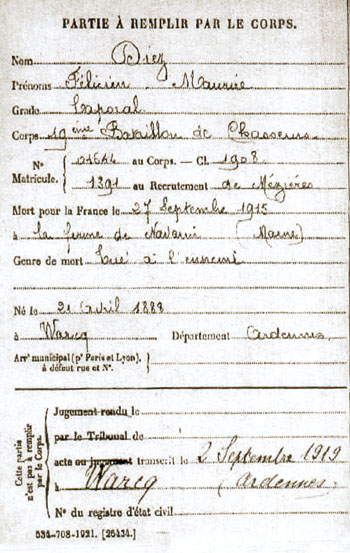 PARTIE À REMPLIR PAR LE CORPS.
Nom Diez
Prénoms Félicien Maurice
Grade Caporal
Corps 19ème Bataillon de Chasseurs
N° Matricule. 01644 au Corps. — Cl. 1908
1391 au Recrutement de Mézières
Mort pour la France le 27 Septembre 1915
à la ferme de Navarin (Marne)
Genre de mort tué à l'ennemi
Né le 21 avril 1888
à Warcq Département Ardennes
Arrt municipal (pr Paris et Lyon), à défaut rue et N°.
Cette partie n'est pas à remplir par le Corps.
Jugement rendu le
par le Tribunal de
acte ou jugement transcrit le 2 Septembre 1919
à Warcq (Ardennes)
N° du registre d'état civil
534-708-1921. [26434.]